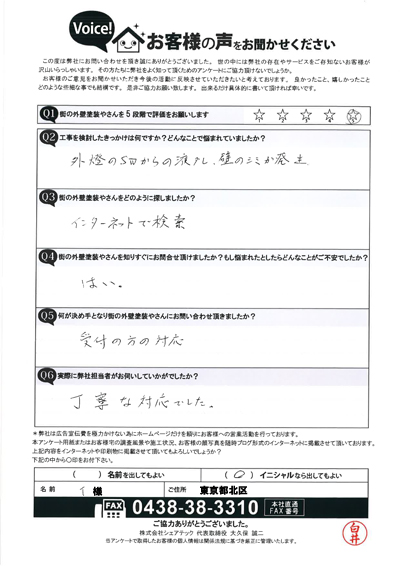 Voice!
お客様の声をお聞かせください
この度は弊社にお問い合わせを頂き誠にありがとうございました。 世の中には弊社の存在やサービスをご存知ないお客様が
沢山いらっしゃいます。 その方たちに弊社をよく知って頂くためのアンケートにご協力頂けないでしょうか。
お客様のご意見をお聞かせいただき今後の活動に反映させていただきたいと考えております。 良かったこと、嬉しかったこと
どのような些細な事でも結構です。 是非ご協力お願い致します。 出来るだけ具体的に書いて頂ければ幸いです。
Q1 街の外壁塗装やさんを5段階で評価をお願いします
Q2 工事を検討したきっかけは何ですか?どんなことで悩まれていましたか?
外燈の からの液 、壁の が発生
Q3 街の外壁塗装やさんをどのように探しましたか?
インターネットで検索
Q4 街の外壁塗装やさんを知りすぐにお問合せ頂けましたか?もし悩まれたとしたらどんなことがご不安でしたか?
はい。
Q5 何が決め手となり街の外壁塗装やさんにお問い合わせ頂きましたか?
受付の方の対応
Q6 実際に弊社担当者がお伺いしていかがでしたか?
丁寧な対応でした。
＊弊社は広告宣伝費を極力かけない為にホームページだけを頼りにお客様への営業活動を行っております。
本アンケート用紙またはお客様宅の調査風景や施工状況、お客様の顔写真を随時ブログ形式のインターネットに掲載させて頂いております。
上記内容をインターネットや印刷物に掲載させて頂いてもよろしいでしょうか?
下記の中から〇印をお付下さい。
( ) 名前を出してもよい ( 〇 ) イニシャルなら出してもよい
名前 I 様 ご住所 東京都北区
FAX 0438-38-3310 本社直通 FAX番号
ご協力ありがとうございました。
株式会社シェアテック 代表取締役 大久保 誠二
※アンケートで取得したお客様の個人情報は関係法規に基づき厳正に管理いたします。
白井